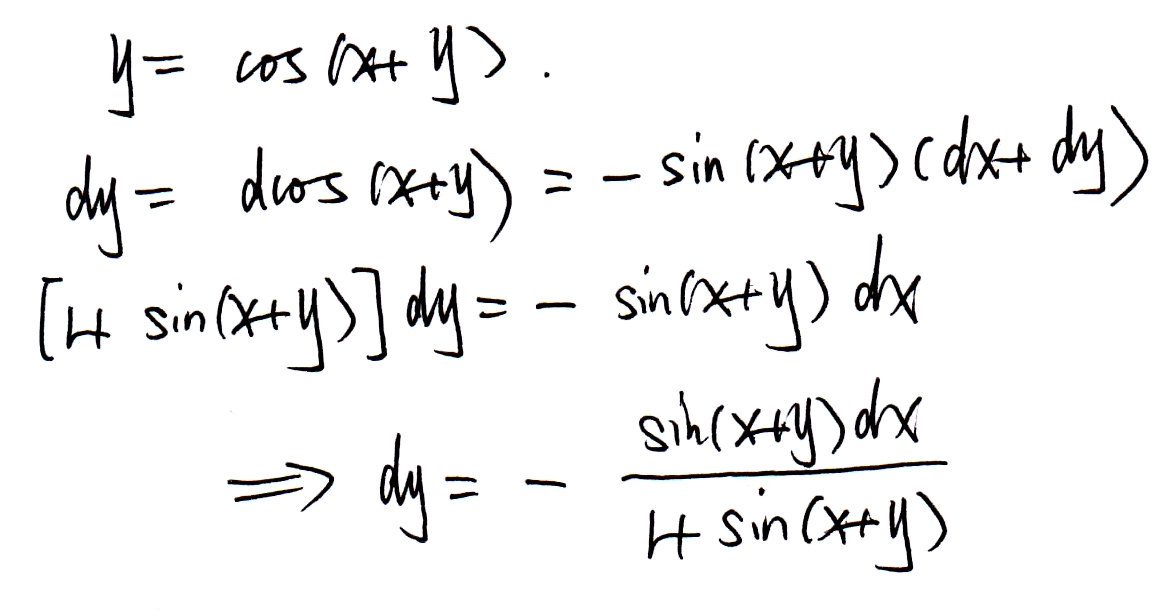 y = cos (x+y).
dy = dcos (x+y) = - sin (x+y) (dx + dy)
[1+ sin(x+y)] dy = - sin(x+y) dx
⟹ dy = - \frac{sin(x+y) dx}{1+ sin(x+y)}